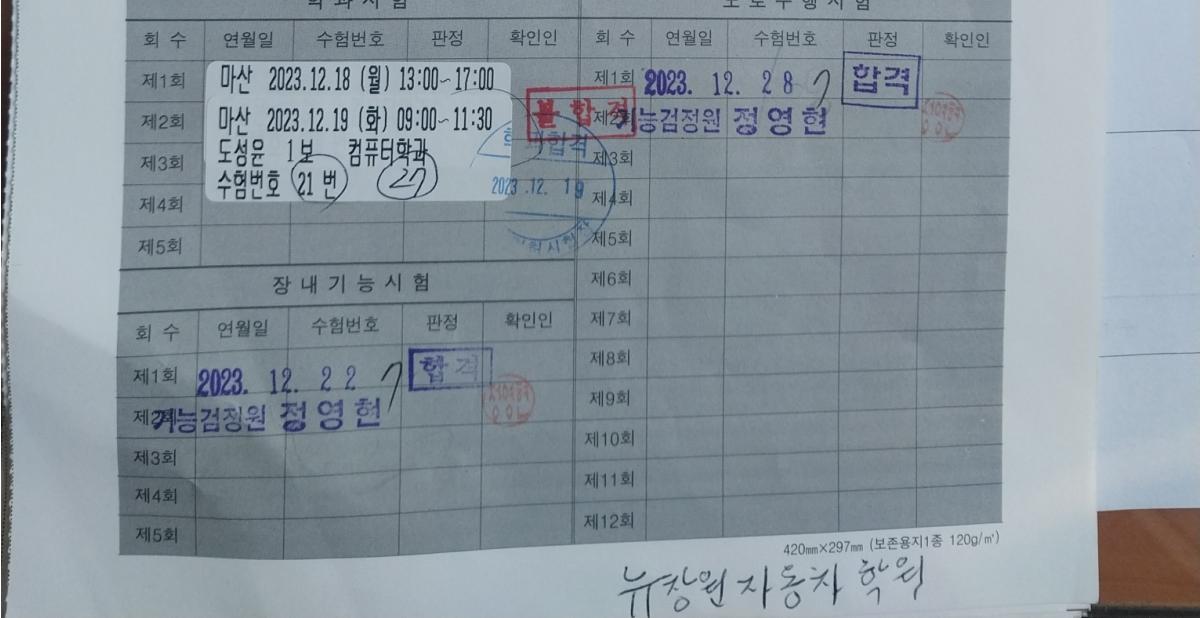 학 과 시 험
회 수 연월일 수험번호 판정 확인인
제1회 마산 2023.12.18 (월) 13:00~17:00
불 합 격
제2회 마산 2023.12.19 (화) 09:00~11:30
도성윤 1보 컴퓨터학과
제3회
수험번호 21 번 27
학과합격
2023.12.19
제4회
제5회
장 내 기 능 시 험
회 수 연월일 수험번호 판정 확인인
제1회 2023. 12. 22 합격
제2회 기능검정원 정영현
제3회
제4회
제5회
도 로 주 행 시 험
회 수 연월일 수험번호 판정 확인인
제1회 2023. 12. 28 합격
제2회 기능검정원 정영현
제3회
제4회
제5회
제6회
제7회
제8회
제9회
제10회
제11회
제12회
420mm×297mm (보존용지1종 120g/㎡)
뉴창원 자동차 학원